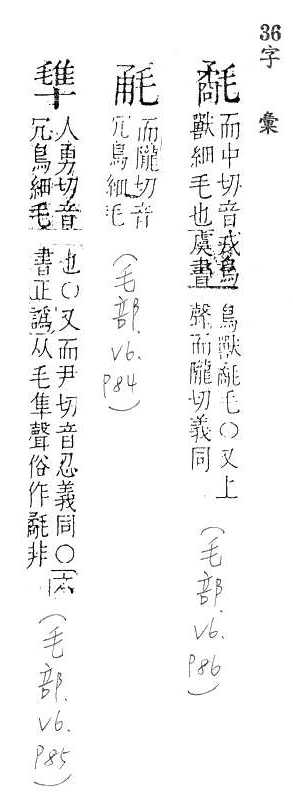 36 字彙
氄
而中切音戎鳥
獸細毛也虞書
鳥獸氄毛○又上
聲而隴切義同
(毛部. V6. P86)
而隴切音
冗鳥細毛
(毛部. V6. P84)
人勇切音
冗鳥細毛
也○又而尹切音忍義同○六
書正譌从毛隼聲俗作氄非
(毛部. V6. P85)